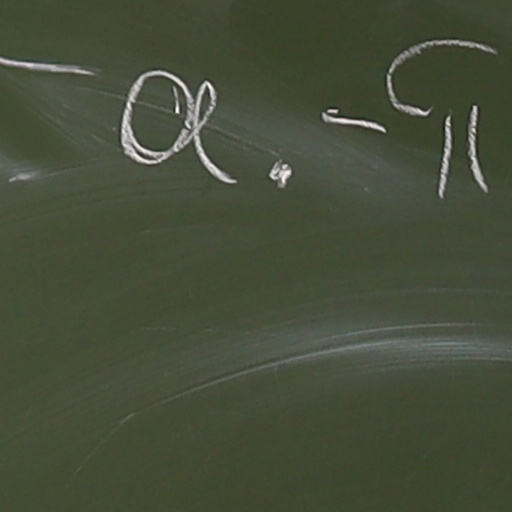 - α. - π